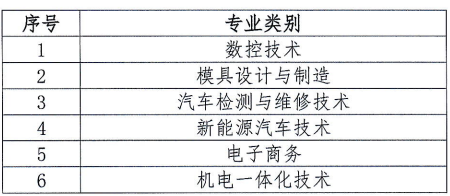 序号 专业类别
1 数控技术
2 模具设计与制造
3 汽车检测与维修技术
4 新能源汽车技术
5 电子商务
6 机电一体化技术